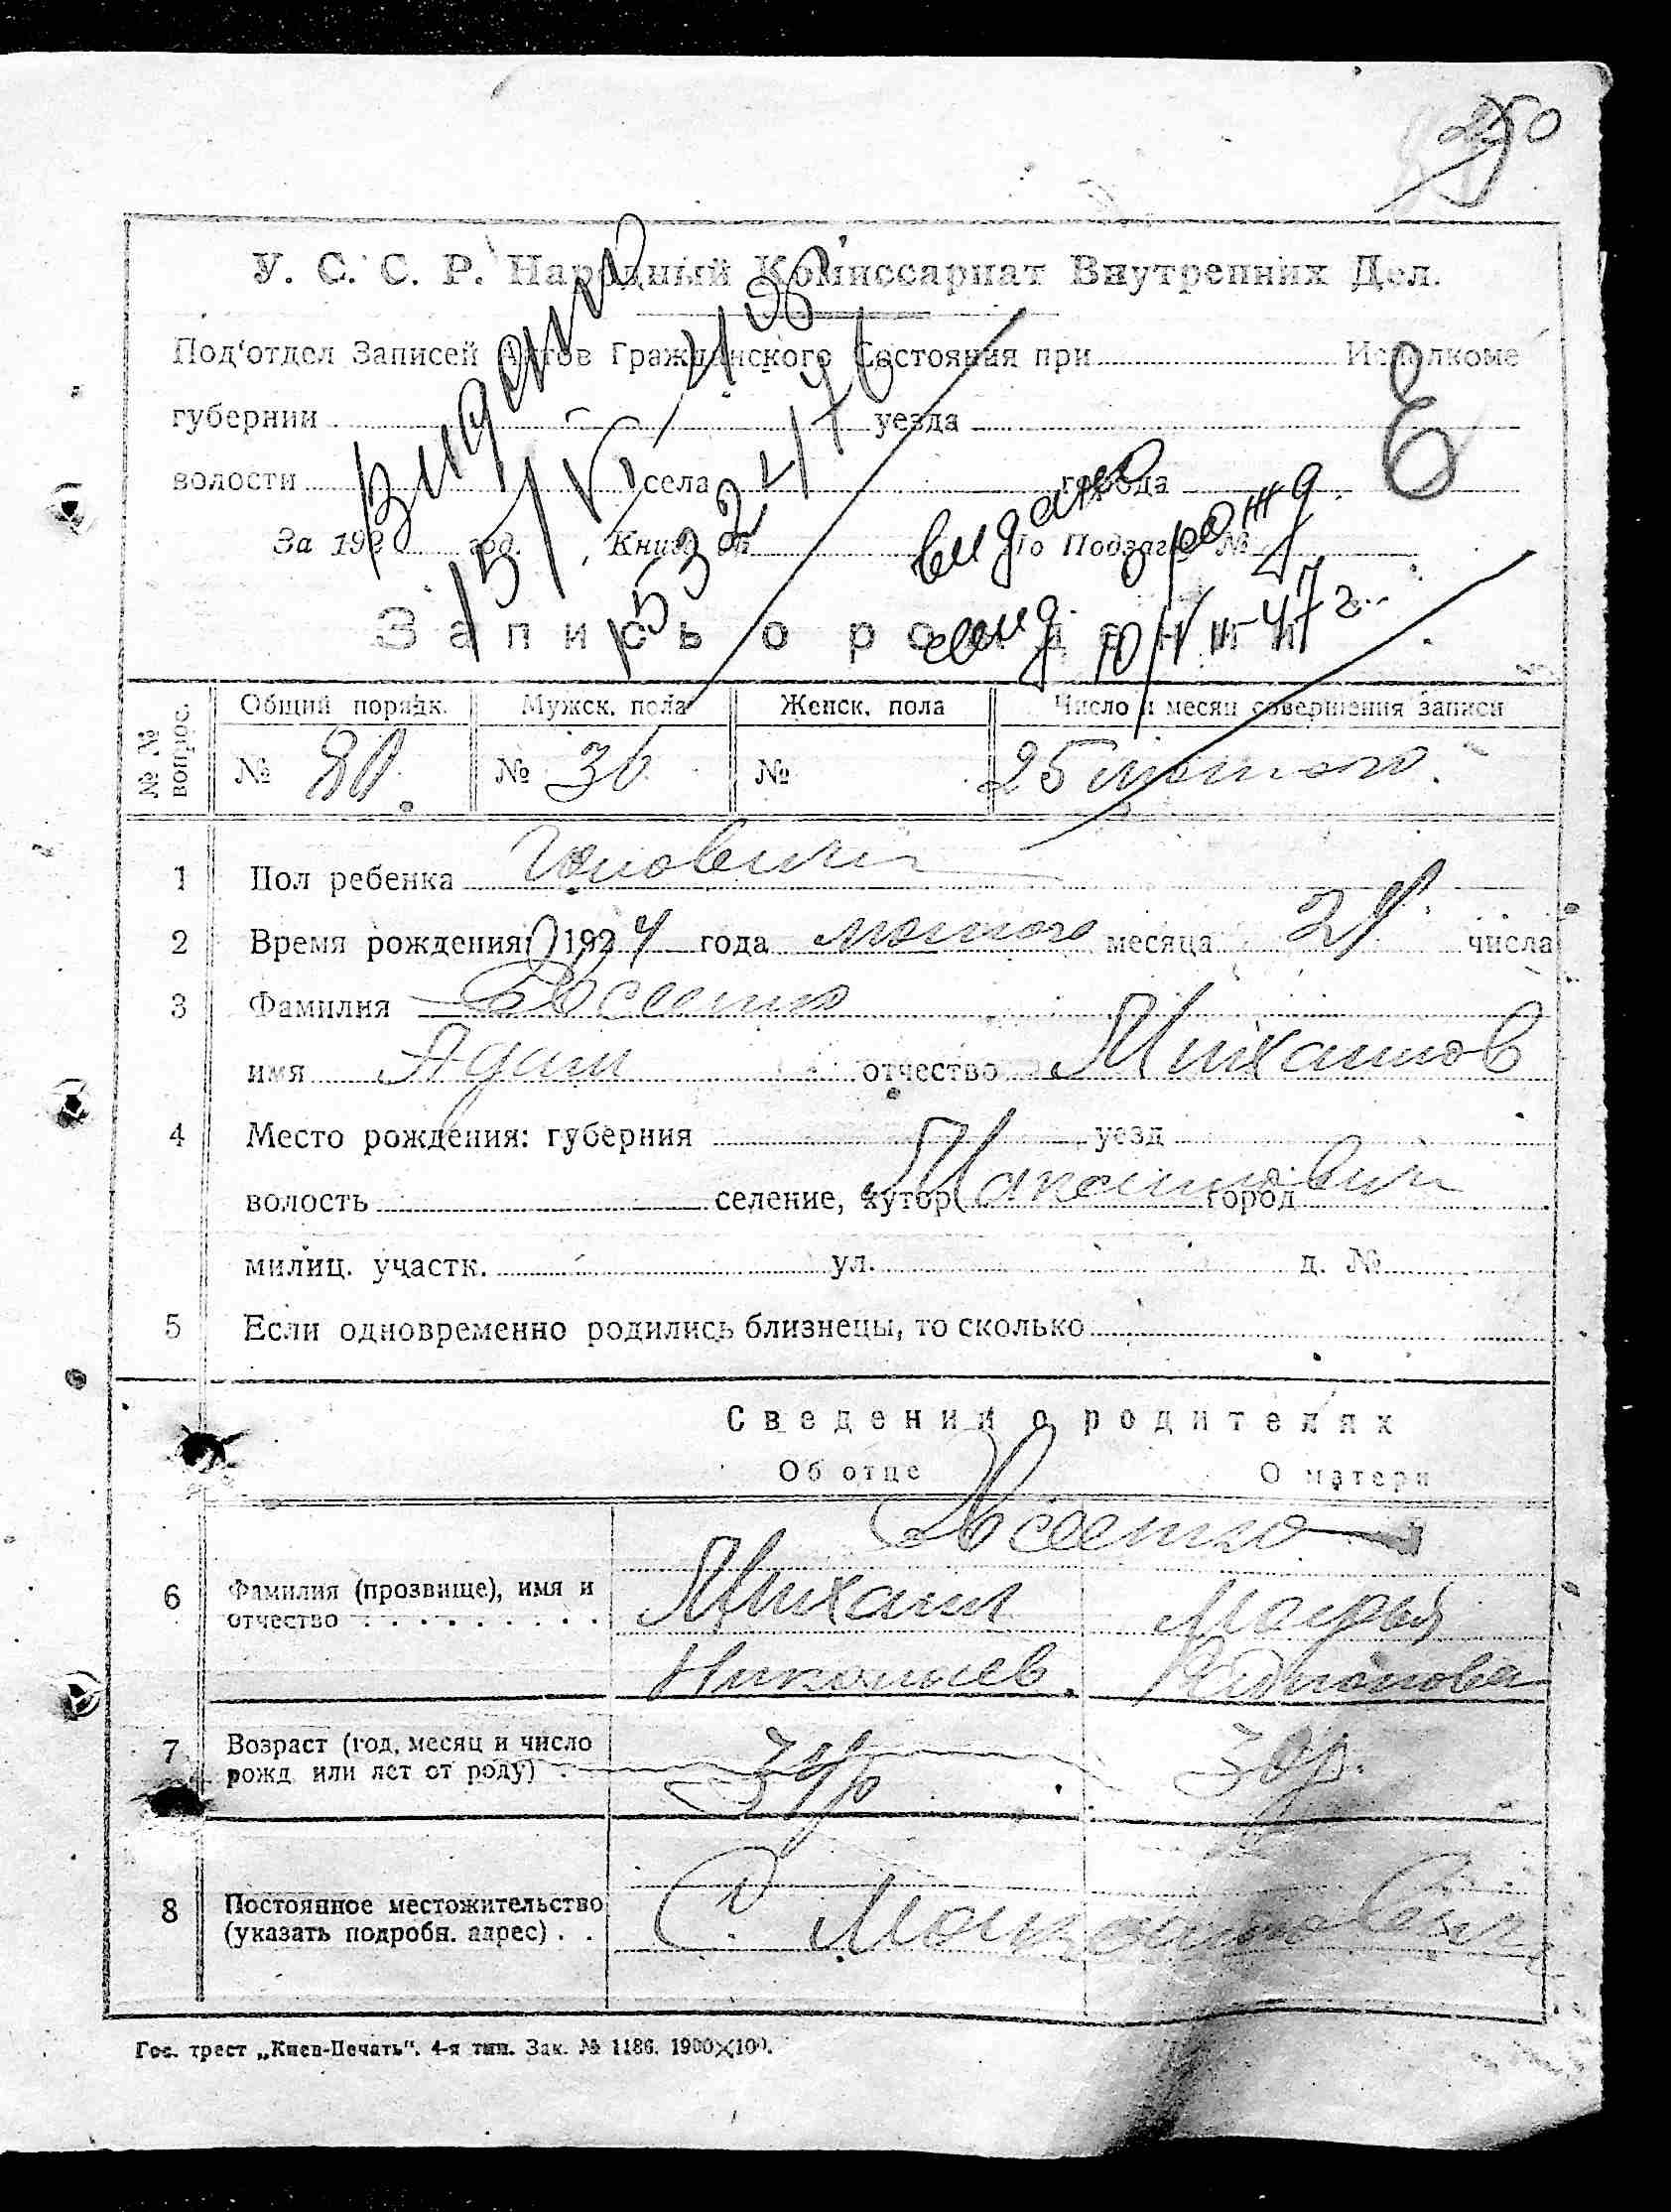 250
У. С. С. Р. Народный Комиссариат Внутренних Дел.
Под'отдел Записей Актов Гражданского Состояния при Исполкоме
губернии уезда
волости села города
За 192 год. Книга По Подзаг. №
Е
Запись о рождении
№№ вопрос. Общий порядк. Мужск. пола Женск. пола Число и месяц совершения записи
№ 80. № 36 № 25 лютого.
1 Пол ребенка
2 Время рождения: 1924 года лютого месяца 21 числа
3 Фамилия Евсеенко
имя Адам отчество Михайлов
4 Место рождения: губерния уезд
волость селение, хутор Максимович город
милиц. участк. ул. д. №
5 Если одновременно родились близнецы, то сколько
Сведения о родителях
Об отце О матери
Евсеенко
6 Фамилия (прозвище), имя и отчество Михаил Марья
Николаев.
7 Возраст (год, месяц и число рожд или лет от роду) 34р 30р.
8 Постоянное местожительство (указать подробн. адрес) С. Максимович
Гос. трест „Киев-Печать". 4-я тип. Зак. № 1186. 1900×100.